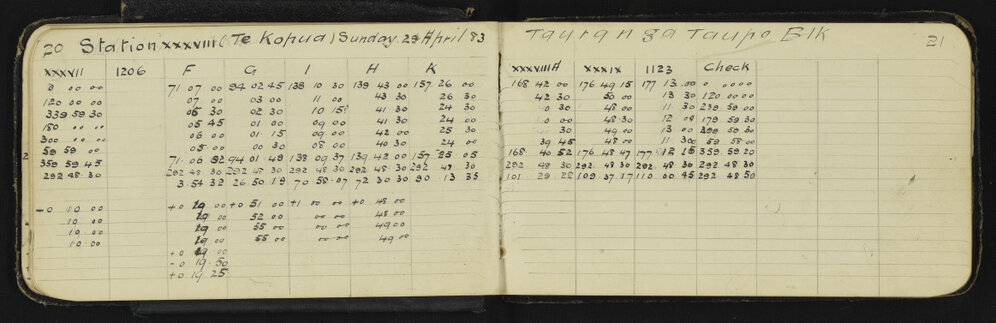 20 Station XXXVIII (Te Kopua) Sunday 29 April 83
XXXVII 1206 F G I H K
0 00 00 71 07 00 94 02 45 138 10 30 139 43 00 157 26 00
120 00 00 07 00 03 00 11 00 43 30 26 30
339 59 30 05 30 02 30 10 15 41 30 24 30
180 00 00 05 45 01 00 09 00 41 30 24 00
300 00 00 06 00 01 15 09 00 42 00 25 30
59 59 00 05 00 00 30 08 00 40 30 24 00
359 59 45 71 06 94 01 49 138 09 37 139 42 00 157 25 05
292 48 30 292 48 30 292 48 30 292 48 30 292 48 30 292 48 30
3 54 32 26 50 19 70 58 07 72 30 30 90 13 35
-0 10 00 +0 19 00 +0 51 00 +1 00 00 +0 48 00
10 00 19 00 52 00 00 00 48 00
10 00 19 00 55 00 00 00 49 00
10 00 19 00 55 00 00 00 49 00
+0 19 00
-0 19 50
+0 19 25
Tauranga Taupo Blk 21
XXXVIIIA XXXIX 1123 Check
168 42 00 176 49 15 177 13 00 0 00 00
42 30 50 00 13 30 120 00 00
30 48 00 11 30 239 59 00
00 48 30 12 00 179 59 30
30 49 00 13 00 299 59 30
39 45 48 00 11 30 59 58 00
168 40 52 176 48 47 177 12 15 359 59 20
292 48 30 292 48 30 292 48 30 292 48 30
101 29 22 109 37 17 110 00 45 292 48 50